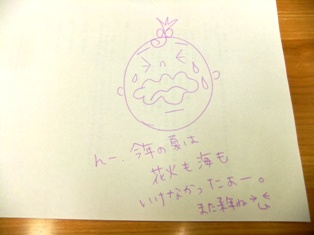 んー、今年の夏は
花火も海も
いけなかったぁー。
また来年ね